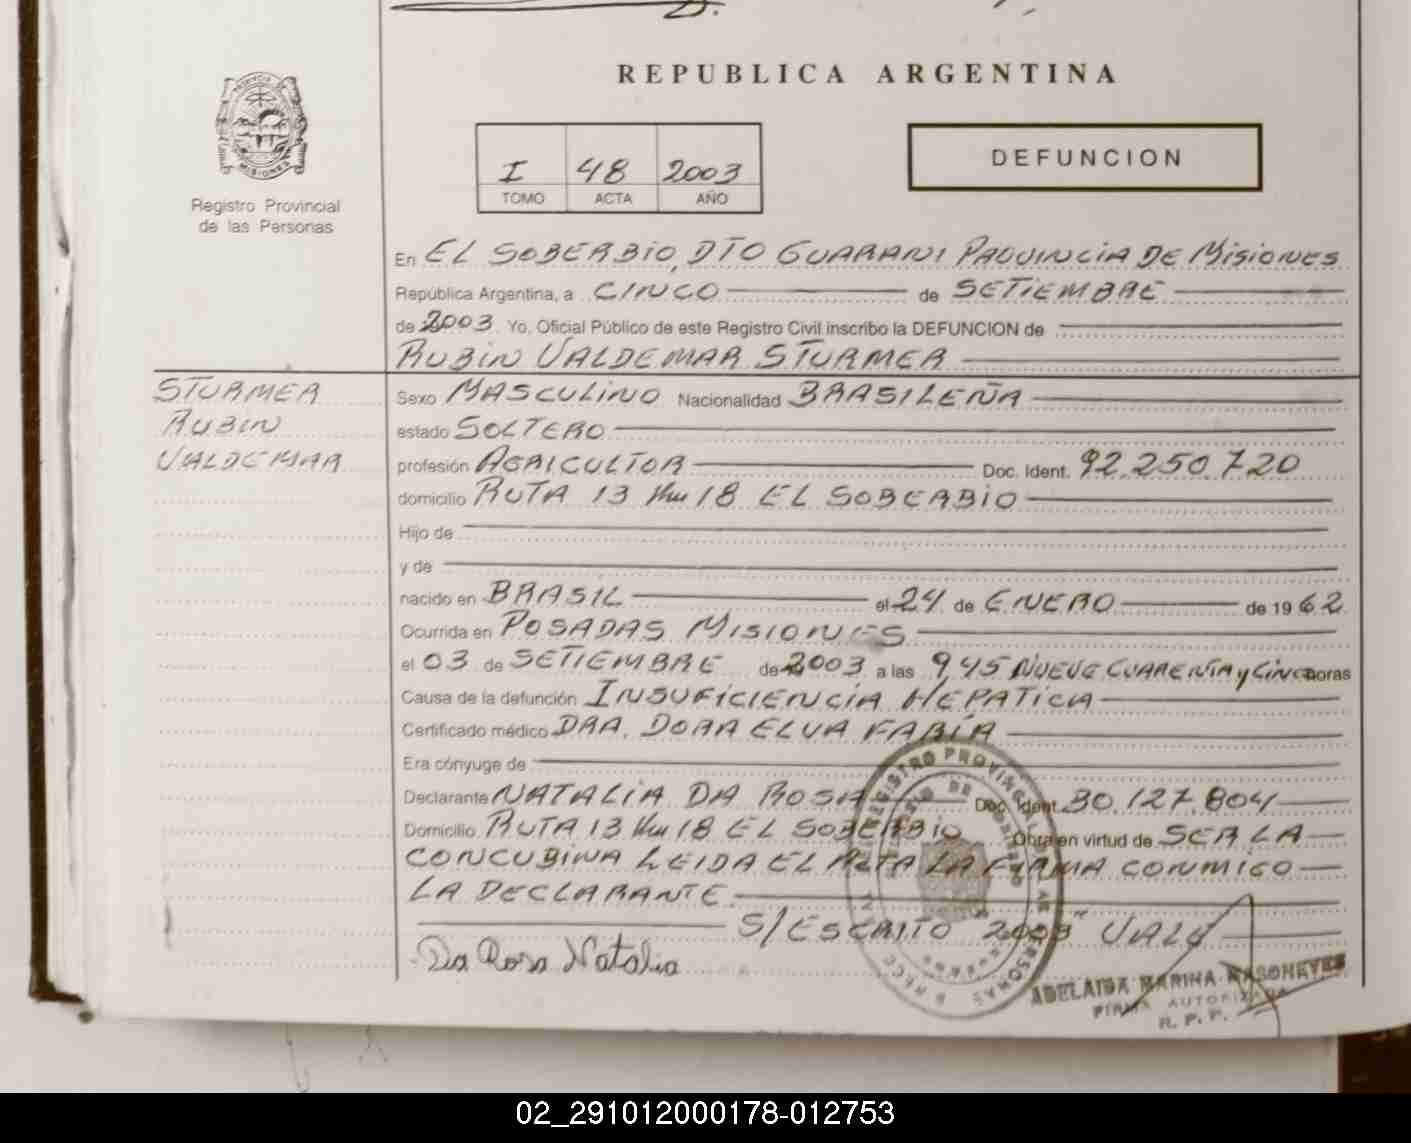 REPUBLICA ARGENTINA
PROVINCIA DE
MISIONES
Registro Provincial
de las Personas
I 48 2003
TOMO ACTA AÑO
DEFUNCION
En EL SOBERBIO, DTO GUARANI PROVINCIA DE MISIONES
República Argentina, a CINCO de SETIEMBRE
de 2003. Yo, Oficial Público de este Registro Civil inscribo la DEFUNCION de
RUBIN VALDEMAR STURMER
STURMER
RUBIN
VALDEMAR
Sexo MASCULINO Nacionalidad BRASILEÑA
estado SOLTERO
profesión AGRICULTOR Doc. Ident. 92.250.720
domicilio RUTA 13 Km 18 EL SOBERBIO
Hijo de
y de
nacido en BRASIL el 24 de ENERO de 1962
Ocurrida en POSADAS MISIONES
el 03 de SETIEMBRE de 2003 a las 9,45 NUEVE CUARENTA y CINCO horas
Causa de la defunción INSUFICIENCIA HEPATICA
Certificado médico DRA. DORA ELVA FARÍA
Era cónyuge de
Declarante NATALIA DA ROSA Doc. Ident. 30.127.804
Domicilio RUTA 13 Km 18 EL SOBERBIO Obra en virtud de SER LA
CONCUBINA LEIDA EL ACTA LA FIRMA CONMIGO
LA DECLARANTE
S/ESCRITO "2003" VALE
Da Rosa Natalia
REGISTRO PROVINCIAL DE LAS PERSONAS
ADELAIDA MARINA
FIRMA AUTORIZADA
R. P. P.
02_291012000178-012753